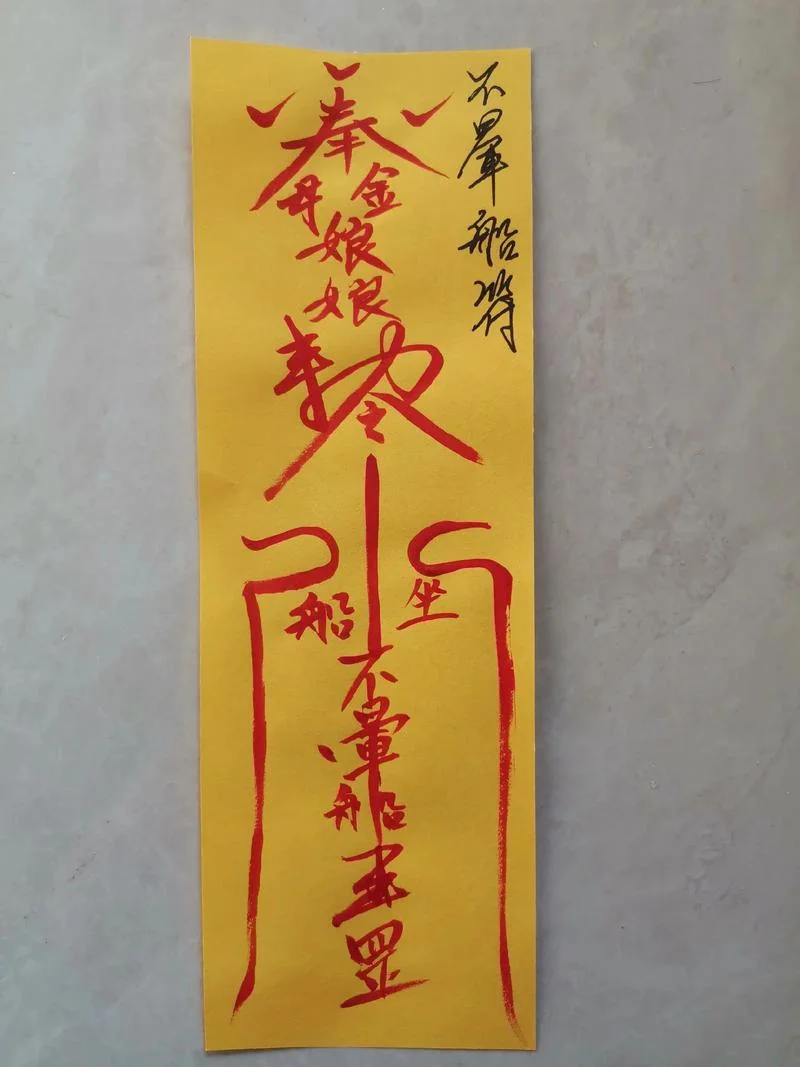 不暈船符
奉
金母
娘
娘
勅令
坐船
不
暈
船
罡